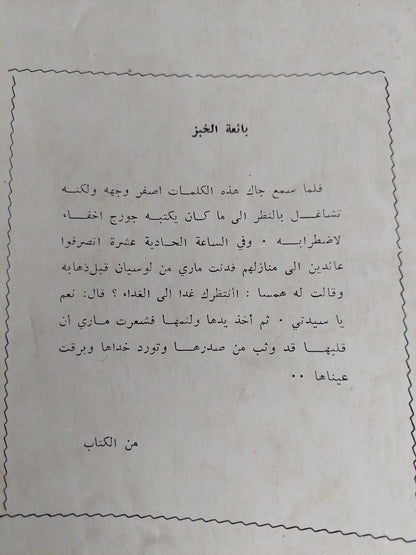 بائعة الخبز
فلما سمع جاك هذه الكلمات اصفر وجهه ولكنه
تشاغل بالنظر الى ما كان يكتبه جورج اخفاء
لاضطرابه . وفي الساعة الحادية عشرة انصرفوا
عائدين الى منازلهم فدنت ماري من لوسيان قبل ذهابه
وقالت له همسا : أأنتظرك غدا الى الغداء ؟ قال: نعم
يا سيدتي . ثم أخذ يدها ولثمها فشعرت ماري ان
قلبها قد وثب من صدرها وتورد خداها وبرقت
عيناها ..
من الكتاب